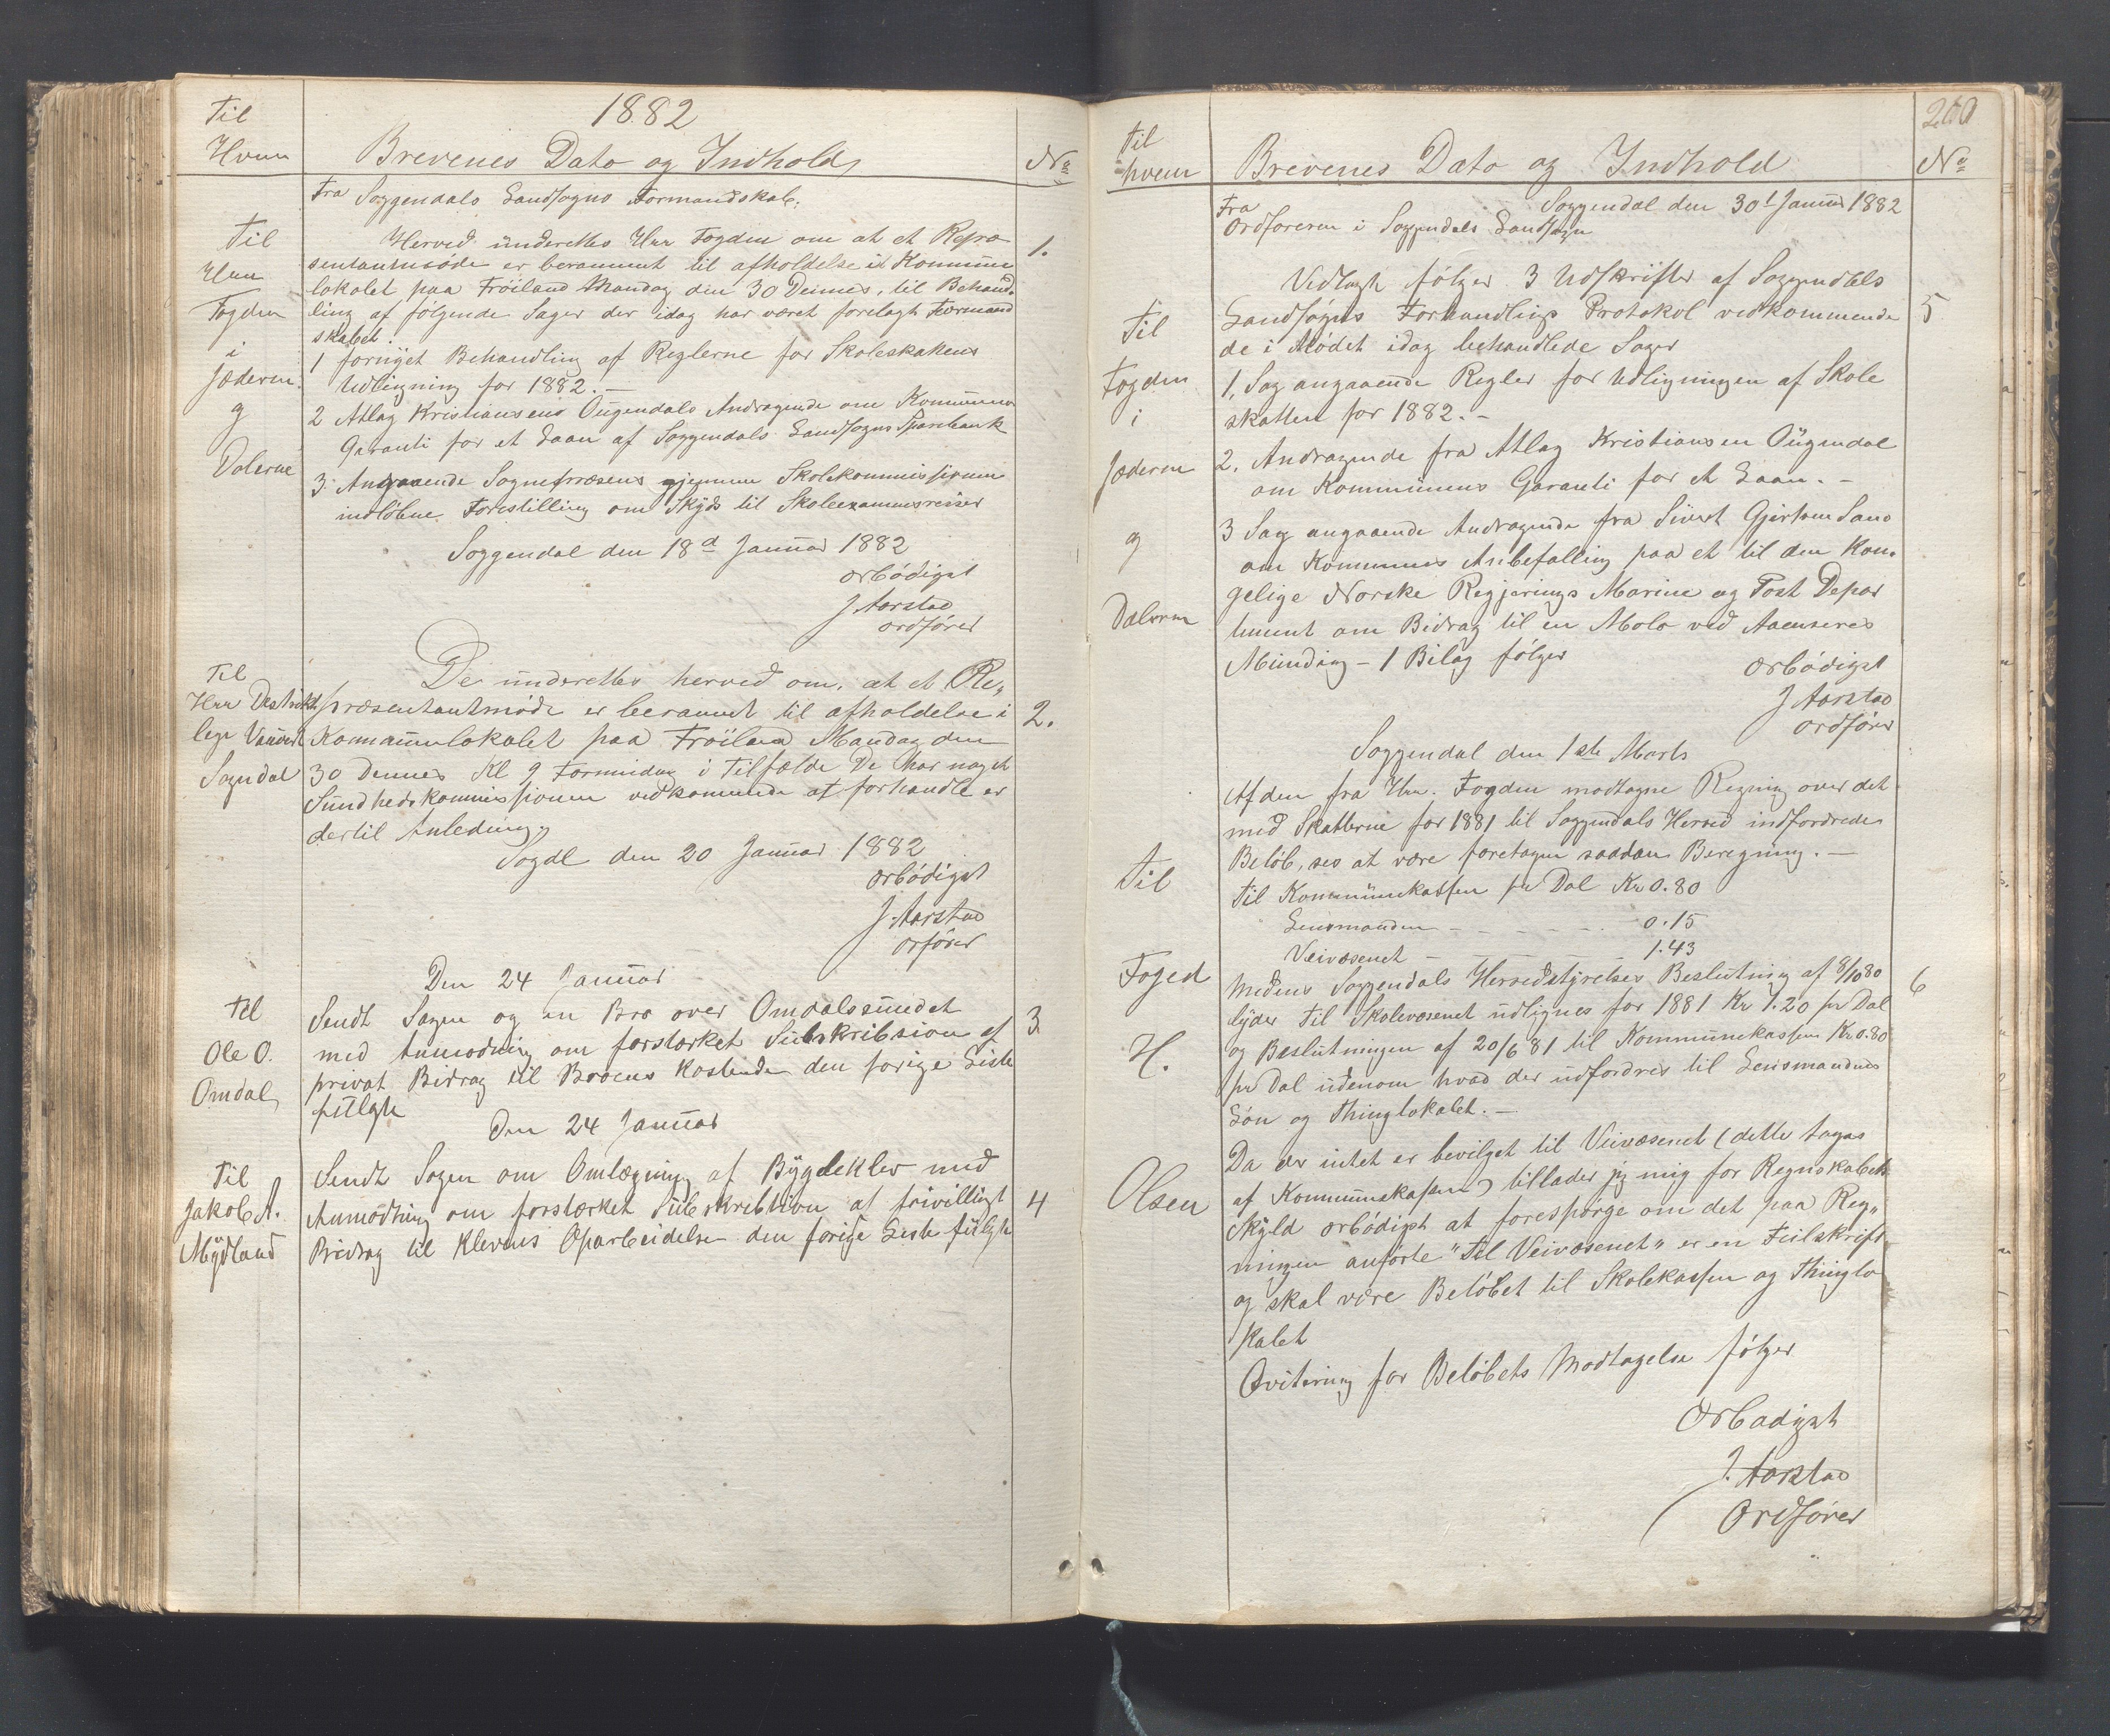 1882
Til
Hvem
Brevenes Dato og Indhold
No
Fra Soggendals Landsogns Formandskab.
Til
Herr
Fogden
i
Jæderen
og
Dalerne
Herved underettes Herr Fogden om at et Repræ
sentantmöde er berammet til afholdelse i Kommune
lokalet paa Fröiland Mandag den 30 Dennes, til Behand-
ling af fölgende Sager der idag har været forelagt Formand
skabet.
1 fornÿet Behandling af Reglerne for Skoleskatens
Udligning for 1882.–
2 Atlag Kristiansens Öÿgendals Andragende om Kommunens
Garanti for et Laan af Soggendals Landsogns Sparebank
3. Angaaende Sognepræsens gjennem Skolekommissionen
indlöbne Forestilling om Skÿds til Skoleexamensreiser
Soggendal den 18d Januar 1882
ærbödigst
J. Aarstad
ordförer
1.
Til
Herr Distrikts
læge
Sogndal
De underettes herved om, at et Re„
præsentantmöde er berammet til afholdelse i
Kommunelokalet paa Fröiland Mandag den
30 Dennes Kl 9 Formidag i Tilfælde De har noget
Sundhedskommissionen vedkomende at forhandle er
dertil Anledning
Sogdl den 20 Januar 1882
ærbödigst
J. Aarstad
orförer
2.
Den 24 Januar
Til
Ole O.
Omdal
Sendt Sagen og en Bro over Omdalssundet
med Anmodning om forstærket Subskribsion af
privat Bidrag til Broens Kostende den forige Liste
fulgte
3
Den 24 Januar
Til
Jakob A.
Mÿdland
Sendt Sagen om Omlægning af Bÿgdeklev med
Anmodning om forstærket Subskribtion af frivilligt
Bidrag til Klevens Oparbeidelse den forige Liste fulgte
4
200
Til
hvem
Brevenes Dato og Indhold
No
Soggendal den 30t Januar 1882
Fra
Ordföreren i Soggendals Landsogn
Til
Fogden
i
Jæderen
og
Dalerne
Vedlagt fölger 3 Udskrifter af Soggendals
Landsogns Forhandlings Protokol vedkommende
de i Mödet idag behandlede Sager
1, Sag angaaende Regler for Udligningen af Skole
skatten for 1882.–
2. Andragende fra Atlag Kristiansen Öÿgendal
om Kommunens Garanti for et Laan.–
3 Sag angaaende Andragende fra Sivert Gjertsen
om Kommunes Anbefalling paa et til den Kon-
gelige Norske Regjerings Marine og Post Depar
tement om Bidrag til en Molo ved Aaenseres
Munding – 1 Bilag fölger
ærbödigst
J Aarstad
ordförer
5
Soggendal den 1ste Marts
Til
Foged
H.
Olsen
Af den fra Hrr. Fogden modtagne Regning over det
med Skatterne for 1881 til Soggendals Herred indfordrede
Belöb, ses at være foretagen saadan Beregning.–
Til Kommunekassen pr Dal Kr 0.80
Lensmanden – – – – – 0.15
Veivæsenet – – – – 1.43
Medens Soggendals Herredstyrelses Beslutning af 8/10 80
lÿder Til Skolevæsenet udlignes for 1881 Kr 1.20 pr Dal
og Beslutningen af 20/6 81 til Kommunekassen Kr 0.80
pr Dal udenom hvad der udfordres til Lensmandens
Lön og Thinglokalet.–
Da der intet er bevilget til Veivæsenet (dette tages
af Kommunekassen) tillader jeg mig for Regnskabets
Skÿld ærbödigst at forespörge om det paa Reg„
ningen anförte "Til Veivæsenet" er en Feilskrift
og skal være Belöbet til Skolekassen og Thinglo
kalet
Qvitering for Belöbets Modtagelse fölger
Ærbødigst
J. Aarstad
Ordförer
6